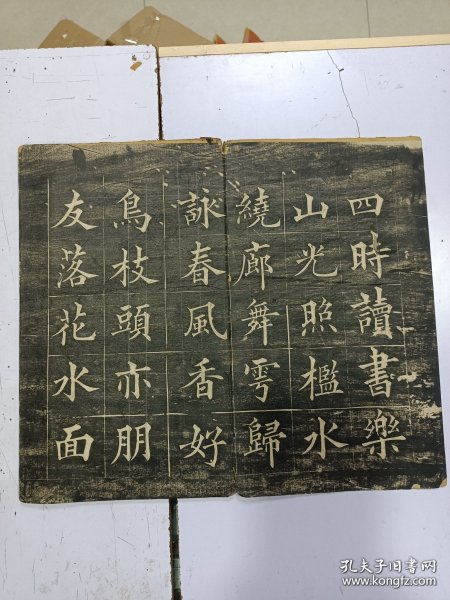 四時讀書樂
山光照檻水
繞廊舞雩歸
詠春風香好
鳥枝頭亦朋
友落花水面
孔夫子旧书网
www.kongfz.com